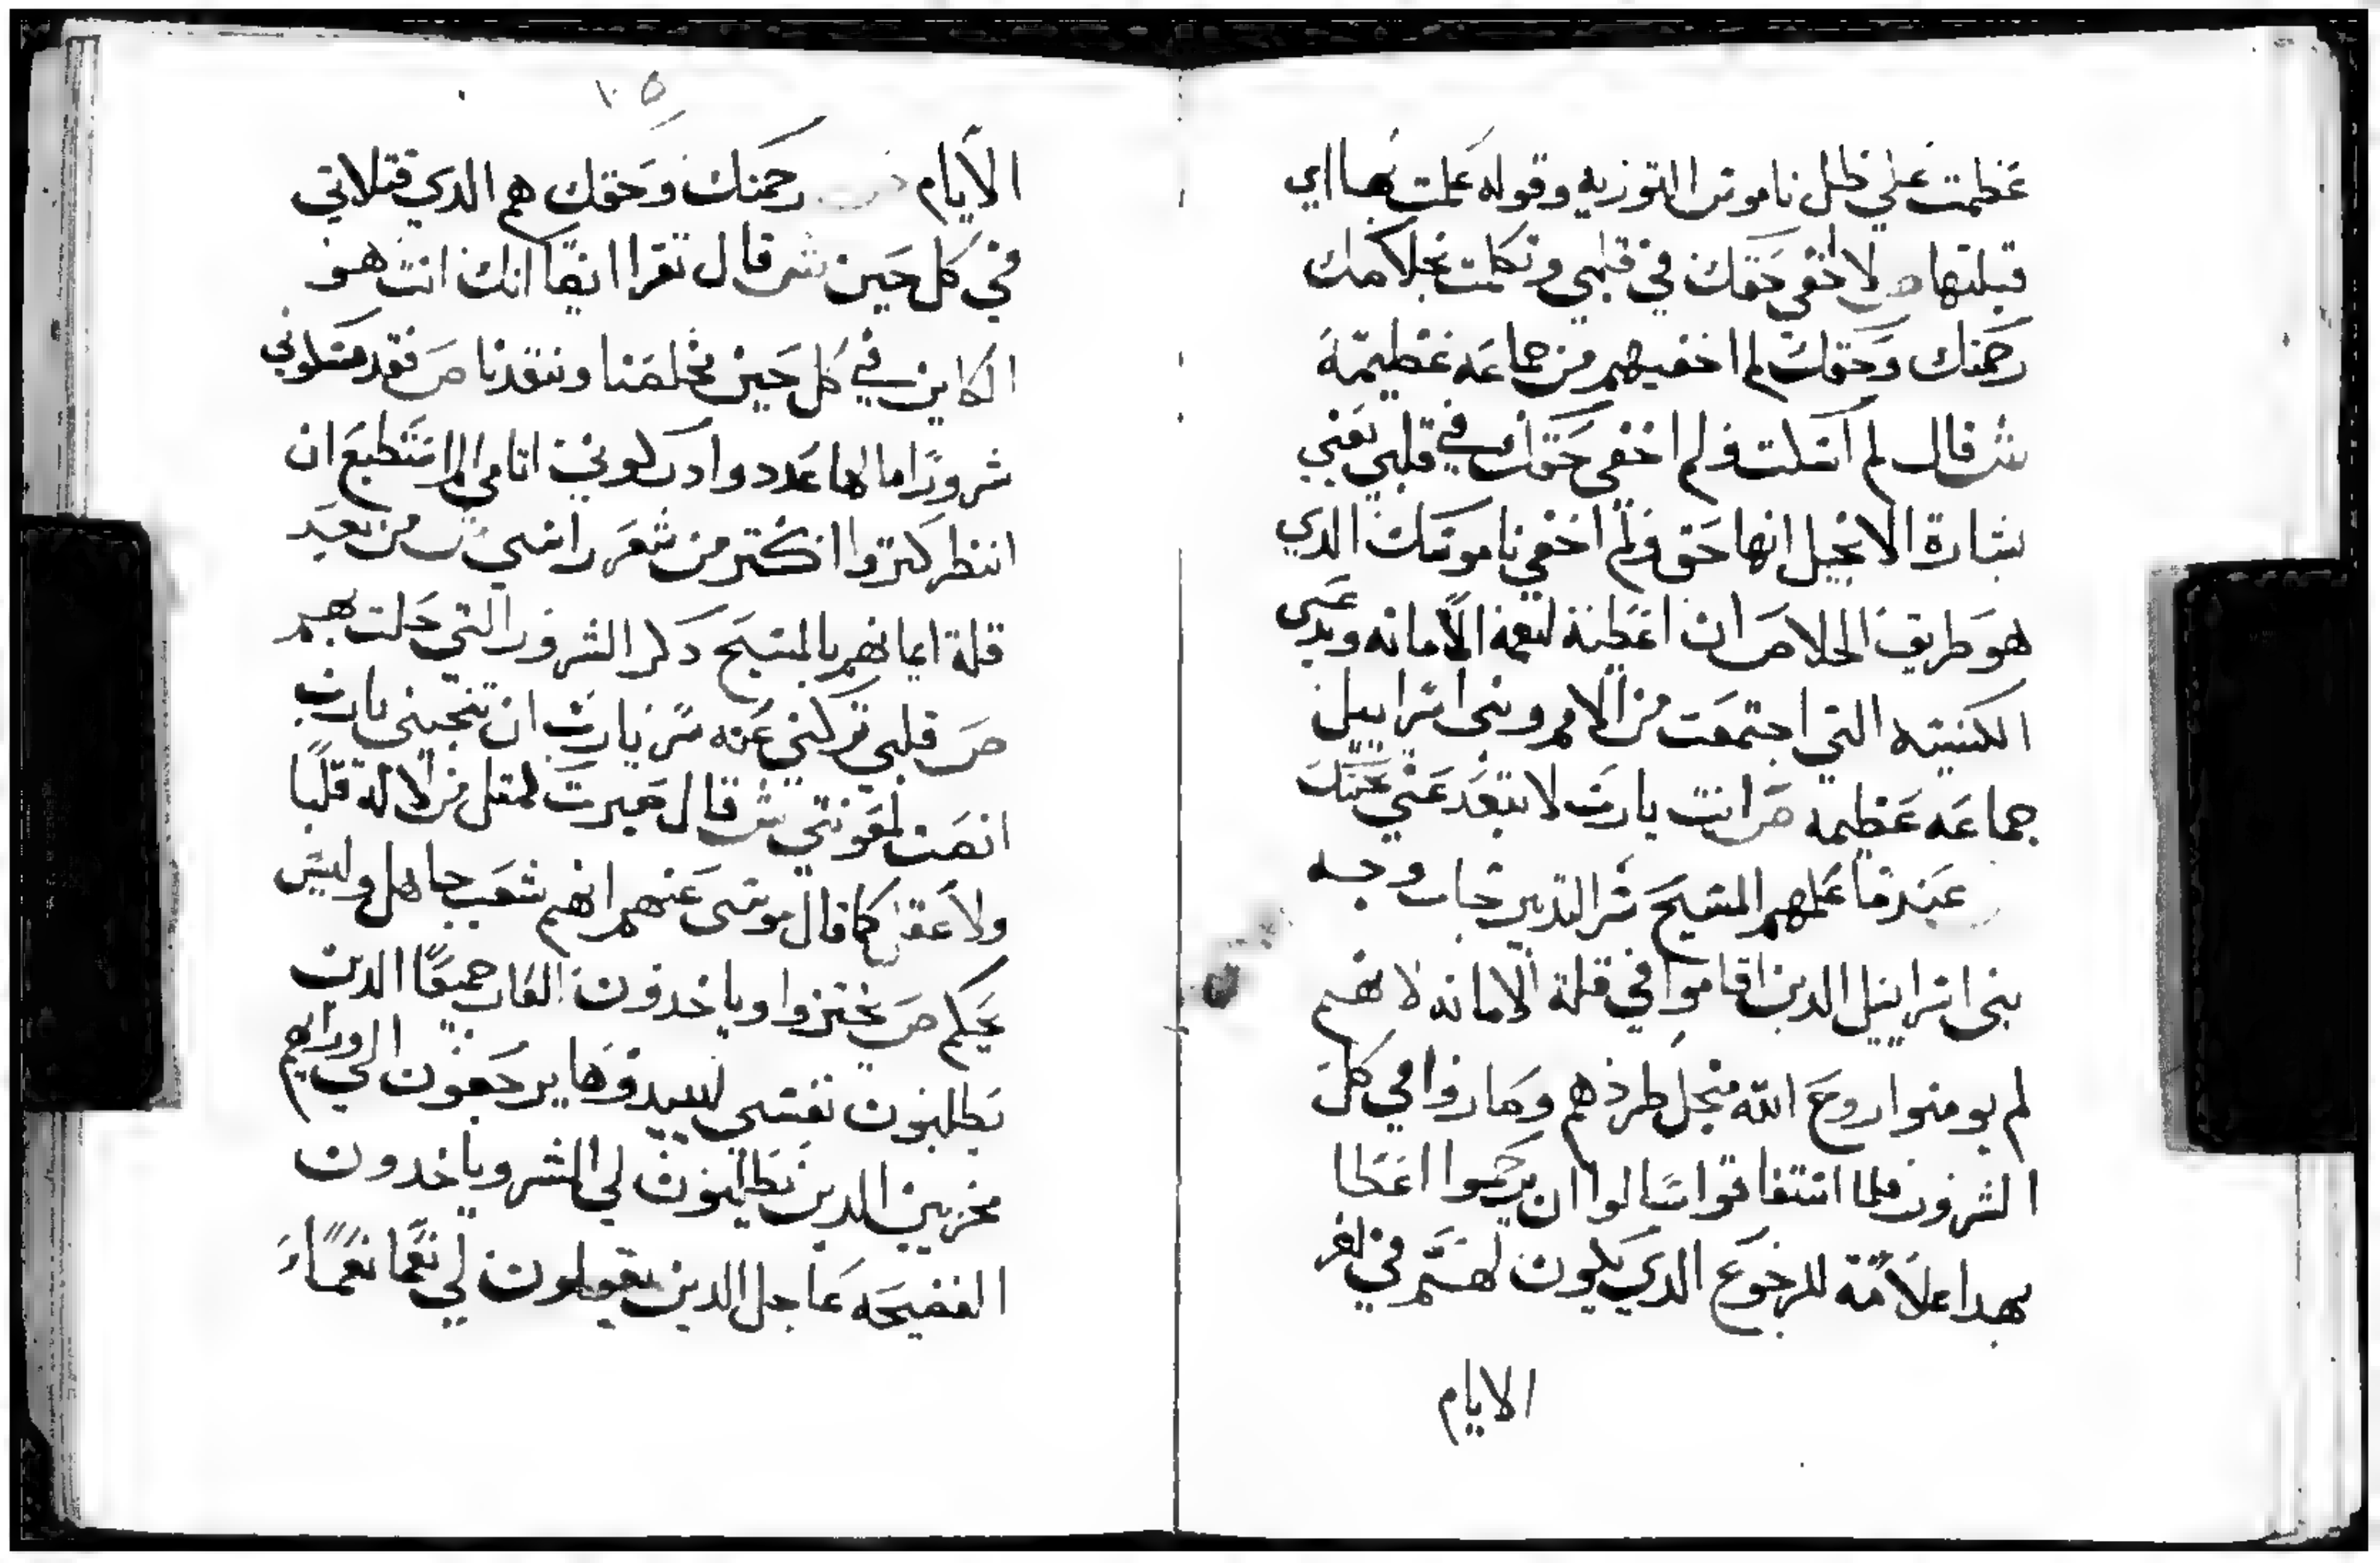 عظمت علي ظل ناموس التوريه وقوله عملت بها اي
قبلتها ص لا اخفى حقك في قلبي وتكلمت بخلاصك
رحمتك وحقك لم اخفيهم من جماعه عظيمة
ش قال لم اسكت ولم اخفى حقك في قلبي يعني
بشارة الانجيل انها حق ولم اخفي ناموسك الدي
هو طريق الخلاص ان اعطية لبيعة الامانه وبدي عسى
الكنيسه التي اجتمعت من الامم وبنى اسراييل
جماعه عظيمه ص انت يارب لا تبعد عني
عندما علمهم المسيح سر التدبير تجاب وجه
بنى اسراييل الدين اقاموا في قلة الامانه لانهم
لم يومنوا روح الله منجل طردهم وصاروا في كل
الشرور فلما استفاقوا سالوا ان يرحموا اعطا
بهدا علامة للرجوع الدي يكون لهم في اخر
الايام
١٠٥
الايام رحمتك وحقك هم الدي قتلاتي
في كل حين ش قال تقرا ايضا انك انت هو
الكاين في كل حين مخلصنا وننقدنا ص فقد مسكوني
شرورا ما لها عدد وادركوني اتامي لم استطيع ان
انظر كتروا اكتر من شعر راسي ش من بعد
قلة ايمانهم بالمسيح دكر الشرور التي حلت بهم
ص قلبي تركني عنه سر يارب ان تنجيني يارب
انصت لمعونتي ش قال صيرت لمقل من لا له قلبا
ولا عقل كما قال موسى عنهم انهم شعب جاهل وليس
بحكيم ص يختزوا وياخدون العاب جميعا الدين
يطلبون نفسي ليبيدوها يرجعون الي وراهم
مخزيين الدين يطلبون لي الشر وياخدون
الفضيحه عاجل الدين يقولون لي نعما نعما